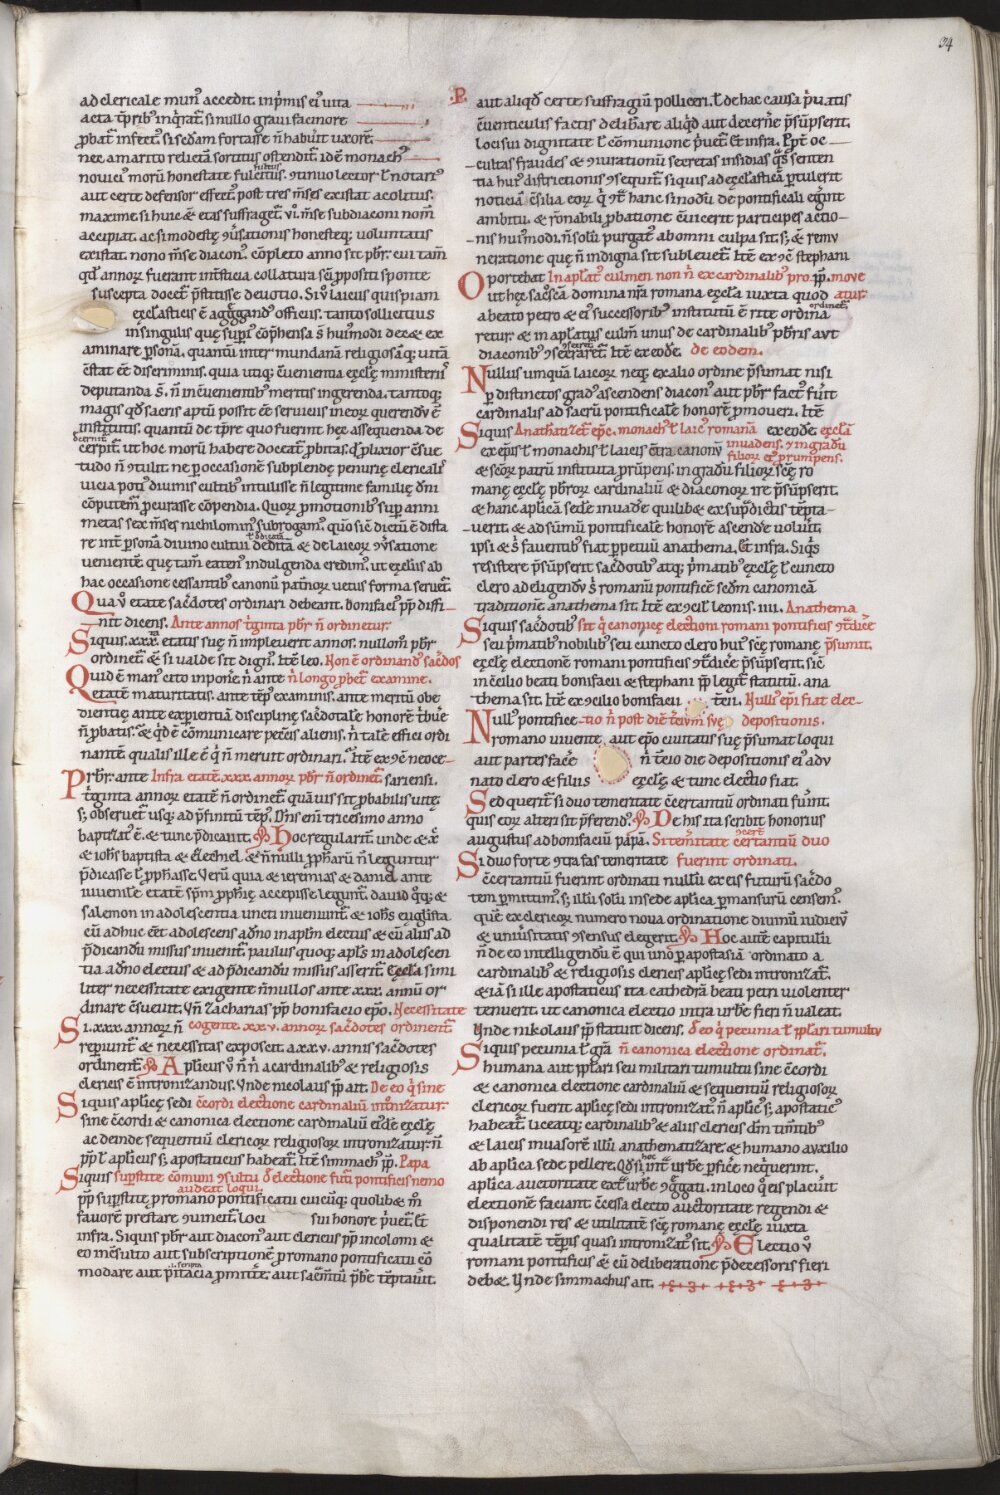 34
ad clericale mun᾽ accedit. inp̄mis ei᾽ uita
acta tp̄rib᾽ inq̇rat᷑. si nullo graui facinore
ꝓbat᷑ infect᾽. si scd̄am fortasse n̄ habuit uxorē.
nec a marito relictā sortitus ostendit᷑. idē monach᾽
nouici᾽ morū honestate fulcitus. ꝯtinuo lector ł notari᾽
aut certe defensor effect᾽. post tres m̄ses existat acolitus.
maxime si huic & etas suffraget᷑. vi. m̄se subdiaconi nom̄
accipiat. ac si modestę ꝯūsationis honesteq; uoluntatis
existat. nono m̄se diacon᾽. cōpleto anno sit pb̄r. cui tam̄
qd̄ annoꝝ fuerant int̄sticia collatura scī ꝓpositi sponte
suscepta docet᷑ p̄stitisse deuotio. Si v̊ laicus quispiam
ęcclasticis ē aggͣgand᾽ officiis. tanto sollicitius
in singulis quę suꝑi᾽ cōp̄hensa s̄ hui᾽modi dec& ex
aminare ꝑsonā. quantū inter mundanā religiosāq; uitā
cstat eē discriminis. quia utiq; c̄uenientia ęcclę ministerii
deputanda s̄. n̄ inc̄uenientib᾽ meritis ingerenda. tantoq;
magis qd̄ sacris aptū possit eē seruiciis in eoꝝ querendū ē
institutis. quantū de tp̄re quo fuerint hęc assequenda de
cerpit᷑. ut hoc morū habere doceat᷑ ꝓbitas. qd̄ ꝓlixior c̄sue
tudo n̄ ꝯtulit. ne ꝑ occasionē supplendę penurię clericalis
uicia poti᾽ diuinis cultib᾽ intulisse n̄ legitime familię dn̄i
cōputem᾽ ꝓcurasse cōpendia. Quoꝝ ꝓmotionib᾽ suꝑ anni
metas sex m̄ses nichilomin᾽ subrogam᾽. quō sic̄ dictū ē dista
re int̄ ꝑsonā diuino cultui deditā & de laicoꝝ ꝯūsatione
uenientē. que tam̄ eaten᾽ indulgenda credim᾽. ut ecc̄lis ab
hac occasione cessantib᾽ canonū patnoꝝ uetus forma seruet᷑.
Qua v̊ etate sac̄dotes ordinari debeant. bonifaci᾽ pp̄ diffi-
nit dicens. Ante annos t̄ginta pb̄r n̄ ordinetur.
Siquis .xxx. etatis suę n̄ impleuerit annos. nullom̊ pb̄r
ordinet᷑. & si ualde sit dign᾽. Itē leo. Non ē ordinand᾽ sac̄dos
Quid ē man᾽ cito imponē. n̄ ante n̄ longo ꝓbet᷑ examine.
etatē maturitatis. ante tēp᾽ examinis. ante meritū obe
dientię. ante expientiā disciplinę sac̄dotale honorē t̄buē
n̄ ꝓbatis. & qd̄ ē cōmunicare pecc̄is alienis. n̄ talē effici ordi
nantē. qualis ille ē q̇ n̄ meruit ordinari. Itē ex ꝯc̄ neoce-
Prb̄r. ante Infra etatē .xxx. annoꝝ pb̄r n̄ ordinet᷑. sariensi.
t̄ginta annoꝝ etatē n̄ ordinet᷑. quāuis sit ꝓbabilis uitę.
s; obseruet᷑ usq; ad p̄finitū tēp᾽. Dn̄s eni tricesimo anno
baptizat᾽ ē. & tunc p̄dicauit. Hoc regularit᷑. unde & xp̄
& ioh̄s baptista & ezechiel. & n̄nulli ꝓph̄arū n̄ leguntur
p̄dicasse ł ꝓph̄asse. Verū quia & ieremias & daniel ante
iuuenile etatē sp̄m ꝓph̄ię accepisse legunt᷑. dauid q̊q; &
salemon in adolescentia uncti inueniunt᷑. & ioh̄s euḡlista
cū adhuc eēt adolescens a dn̄o in apl̄m electus & cū aliis ad
p̄dicandū missus inuenit᷑. paulus quoq; apl̄s in adolescen
tia a dn̄o electus & ad p̄dicandū missus asserit᷑. Ęccl̄a simi
liter necessitate exigente n̄nullos ante .xxx. annū or
dinare c̄sueuit. Vn̄ Zacharias pp̄ bonifacio ep̄o. Necessitate
Si .xxx. annoꝝ n̄ cogente .xx.v. annoꝝ sac̄dotes ordinent᷑.
repiunt᷑ & necessitas exposcit. a .xx.v. annis sac̄dotes
ordinent᷑. Aplicus v̊ n̄ n̄ a cardinalib᾽ & religiosis
clericis ē intronizandus. Vnde nicolaus pp̄ ait. De eo q̇ sine
Siquis aplicę sedi c̄cordi electione cardinaliū int̊nizatur.
sine c̄cordi & canonica electione cardinaliū ei᾽dē ęccl̄ę
ac deinde sequentiū clericoꝝ religiosoꝝ intronizatur. n̄
pp̄ ł aplicus s; apostaticus habeat᷑. Itē simmach᾽ pp̄. Papa
Siquis suꝑstite cōmuni ꝯsultu d̄ electione futi̇ pontificis nemo
audeat loqui.
pp̄ suꝑstitę ꝓ romano pontificatu cuicūq; quolib& m̊
fauorē prestare ꝯuincit᷑. loci sui honore p̄uet᷑. Et
infra. Siquis pb̄r aut diacon᾽ aut clericus pp̄ incolomi &
eo inc̄sulto aut subscriptionē ꝓ romano pontificatu cō
modare aut pitacia ꝓmitte. aut sac̄mtū p̄be tēptauit.
P.
aut aliqd̄ certe suffragiū polliceri. ł de hac causa p̄uatis
c̄uenticulis factis delib̄are aliqd̄ aut decernē p̄sūpserit.
loci sui dignitate ł cōmunione p̄uet᷑. Et infra. Ppt̄ oc-
cultas fraudes & ꝯiurationū secretas insidias qͣs senten
tia hui᾽ districtionis ꝯsequit᷑. siquis ad ęccl̄asticā ꝑtulerit
noticiā c̄silia eoꝝ q̇ ꝯͣ hanc sinodū de pontificali egunt
ambitu. & rōnabili ꝓbatione c̄uicerit participes actio-
nis hui᾽modi. n̄ solū purgat᾽ ab omni culpa sit. s; & remu
neratione quę n̄ indigna sit subleuet᷑. Itē ex ꝯc̄ stephani
Oportebat In aplat᾽ culmen non n̄ ex cardinalib᾽ pro. pp̄. move
ut hęc sacͣscā domina nr̄a romana ęccl̄a iuxta quod atur
a beato petro & ei᾽ successorib᾽ institutū ē rite ordina
retur. & in aplat᾽ culm̄ unus de cardinalib᾽ pb̄ris aut
diaconib᾽ ꝯsecraret᷑. Itē ex eodē. de eodem.
Nullus umquā laicoꝝ neq; ex alio ordine p̄sumat nisi
ꝑ distinctos grad᾽ ascendens diacon᾽ aut pb̄r fact᾽ fuit
cardinalis ad sacrū pontificale honorē ꝓmoueri. Itē
Siquis Anathatizet᷑ ep̄c. monach᾽ ł laic᾽ romanā ex eodē. ęccl̄ā
ex ep̄is ł monachis ł laicis c̄tra canonū inuadens. ꝯ in gradū
filioꝝ ei᾽ prumpens.
& sc̄oꝝ patrū instituta prūpens. in gradū filioꝝ scę ro
manę ęccl̄ę pb̄roꝝ cardinaliū & diaconoꝝ ire p̄sūpserit.
& hanc aplicā sedē inuade quilib& ex sup̄dictis tēpta-
uerit. & ad sūmū pontificale honorē ascende uoluit.
ipsi & s̄ fauentib᾽ fiat ꝑpetuū anathema. Et infra. Siq̇s
resistere p̄sūpserit sac̄dotib᾽ atq; p̄matib᾽ ęccl̄ę ł cuncto
clero ad eligendū s̄ romanū pontificē sedm̄ canonicā
traditionē anathema sit. Itē ex ꝯcil᾽ leonis .iiii. Anathema
Siquis sac̄dotib᾽ sit q̇ canonicę electioni romani pontificis ꝯͣdice
seu p̄matib᾽ nobilib᾽ seu cuncto clero hui᾽ scę romanę p̄sumit.
ęccl̄ę electionē romani pontificis ꝯͣdicē p̄sūpserit. sic̄
in c̄cilio beati bonifacii & stephani pp̄ legit᷑ statutū. ana
thema sit. Itē ex ꝯcilio bonifacii t̄cii. Null᾽ ep̄i fiat elec-
Null᾽ pontifice tio n̄ post diē t̄cium suę depositionis.
romano uiuente. aut ep̄o ciuitatis suę p̄sumat loqui
aut partes facē n̄ t̄cio die depositionis ei᾽ adu
nato clero & filiis ęccl̄ę. & tunc electio fiat.
Sed querit᷑ si duo temeritate c̄certantiū ordinati fuint.
quis eoꝝ alteri sit p̄ferend᾽. De his ita scribit honorius
augustus ad bonifaciū papā. Si temitate c̄certantiū duo
Si duo forte ꝯtra fas temeritate fuerint ordinati.
c̄certantiū fuerint ordinati nullū ex eis futurū sac̄do
tem ꝑmittim᾽. s; illū solū in sede aplica ꝑmansurū censem᾽.
quē ex clericoꝝ numero noua ordinatione diuinū iudiciū
& uniūsitatis ꝯsensus elegerit. Hoc autē capitulū
n̄ de eo intelligendū ē qui uno ꝑ apostasiā ordinato a
cardinalib᾽ & religiosis clericis aplicę sedi intronizat᷑.
& iā si ille apostaticus ita cathedrā beati petri uiolenter
tenuerit. ut canonica electio intra urbē fieri n̄ ualeat.
Vnde nikolaus pp̄ statuit dicens. d̄ eo q̇ pecunia ł pp̄lari tumultu
Siquis pecunia ł gr̄a n̄ canonica electione ordinat᷑.
humana aut pp̄lari seu militari tumultu sine c̄cordi
& canonica electione cardinaliū & sequentiū religiosoꝝ
clericoꝝ fuerit aplicę sedi intronizat᾽. n̄ aplic᾽ s; apostatic᾽
habeat᷑. liceatq; cardinalib᾽ & aliis clericis dm̄ tim̄tib᾽
& laicis inuasorē illū anathematizare. & humano auxilio
ab aplica sede pellere. Qd̄ si hoc int̄ urbē ꝑficē neq̇uerint.
aplica auctoritate ext̄ urbē ꝯgͣgati. in loco q̇ eis placuit
electionē faciant. c̄cessa electo auctoritate regendi &
disponendi res & utilitatē scę romanę ęccl̄ę iuxta
qualitatē tēpis quasi intronizat᾽ sit. Electio v̊
romani pontificis & cū deliberatione p̄decessoris fieri
deb&. Vnde simmachus ait.